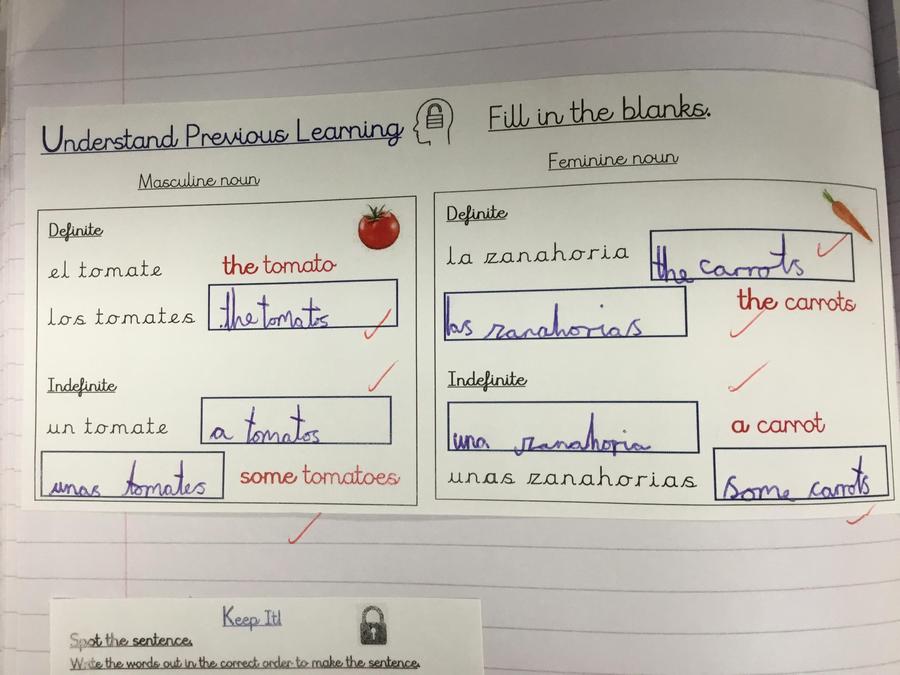 Understand Previous Learning
Fill in the blanks.
Masculine noun
Definite
el tomate the tomato
los tomates the tomatos
Indefinite
un tomate a tomatos
unas tomates some tomatoes
Feminine noun
Definite
la zanahoria the carrots
las zanahorias the carrots
Indefinite
una zanahoria a carrot
unas zanahorias some carrots
Keep It!
Spot the sentence.
Write the words out in the correct order to make the sentence.